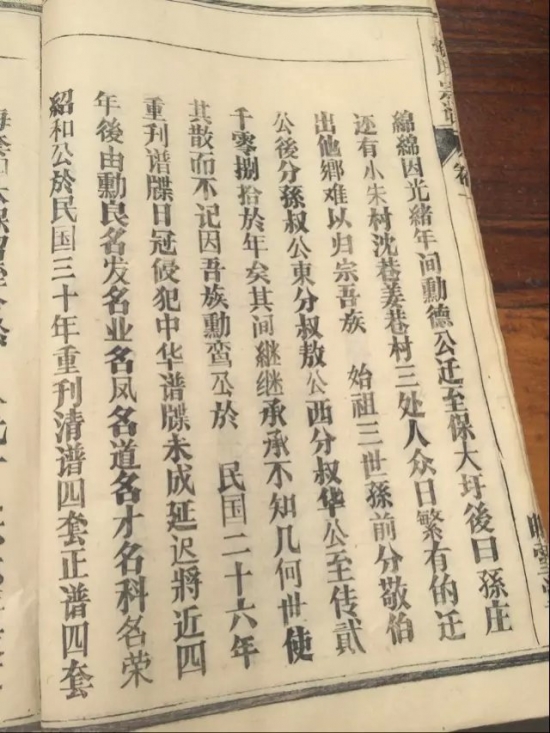 綿綿因光緒年间勳德公迁至保大圩後曰孫庄
还有小朱村沈巷姜巷村三处人众日繁有的迁
出他鄉难以归宗吾族　始祖三世孫前分敬伯
公後分孫叔公東分叔敖公西分叔华公至传貳
千零捌拾於年矣其间継继承承不知几何世使
其散而不记因吾族勳鸾公於　民国二十六年
重刊谱牒日冦侵犯中华谱牒未成延迟將近四
年後由勳良名发名业名凤名道名才名科名荣
紹和公於民国三十年重刊清谱四套正谱四套